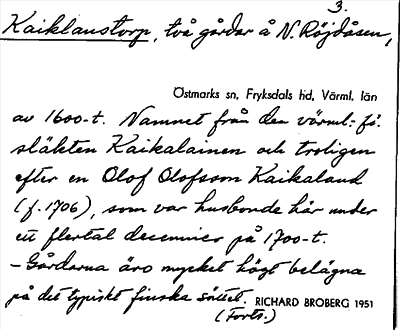 3.
Kaiklanstorp, två gårdar å N. Röjdåsen,
Östmarks sn, Fryksdals hd, Värml. län
av 1600-t. Namnet från den värml.-fi.
släkten Kaikalainen och troligen
efter en Olof Olofsson Kaikaland
(f. 1706), som var husbonde här under
ett flertal decennier på 1700-t.
– Gårdarna äro mycket högt belägna
på det typiskt finska sättet. RICHARD BROBERG 1951
(Forts.)